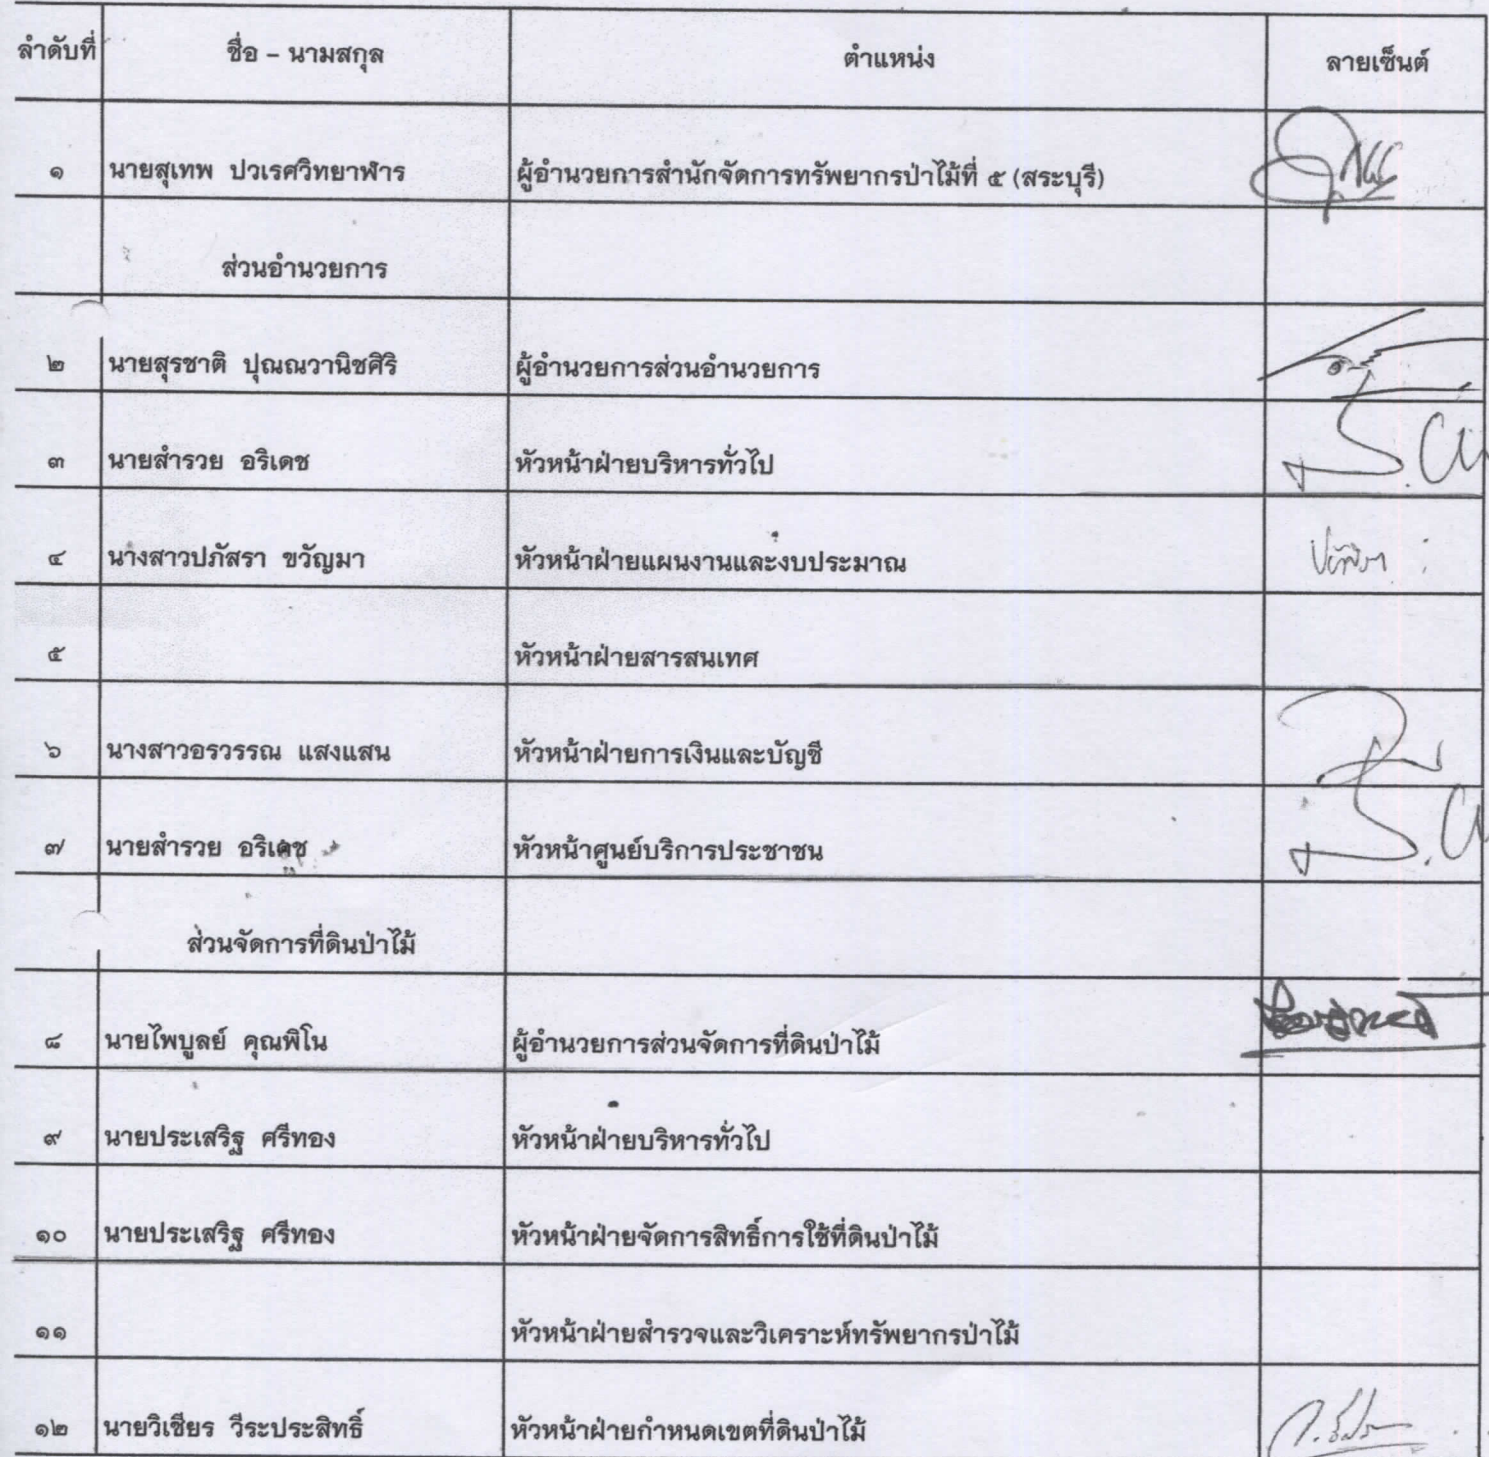 ลำดับที่ ชื่อ - นามสกุล ตำแหน่ง ลายเซ็นต์
๑ นายสุเทพ ปวเรศวิทยาฬาร ผู้อำนวยการสำนักจัดการทรัพยากรป่าไม้ที่ ๕ (สระบุรี)
ส่วนอำนวยการ
๒ นายสุรชาติ ปุณณวานิชศิริ ผู้อำนวยการส่วนอำนวยการ
๓ นายสำรวย อริเดช หัวหน้าฝ่ายบริหารทั่วไป
๔ นางสาวปภัสรา ขวัญมา หัวหน้าฝ่ายแผนงานและงบประมาณ
๕ หัวหน้าฝ่ายสารสนเทศ
๖ นางสาวอรวรรณ แสงแสน หัวหน้าฝ่ายการเงินและบัญชี
๗ นายสำรวย อริเดช หัวหน้าศูนย์บริการประชาชน
ส่วนจัดการที่ดินป่าไม้
๘ นายไพบูลย์ คุณพิโน ผู้อำนวยการส่วนจัดการที่ดินป่าไม้
๙ นายประเสริฐ ศรีทอง หัวหน้าฝ่ายบริหารทั่วไป
๑๐ นายประเสริฐ ศรีทอง หัวหน้าฝ่ายจัดการสิทธิ์การใช้ที่ดินป่าไม้
๑๑ หัวหน้าฝ่ายสำรวจและวิเคราะห์ทรัพยากรป่าไม้
๑๒ นายวิเชียร วีระประสิทธิ์ หัวหน้าฝ่ายกำหนดเขตที่ดินป่าไม้